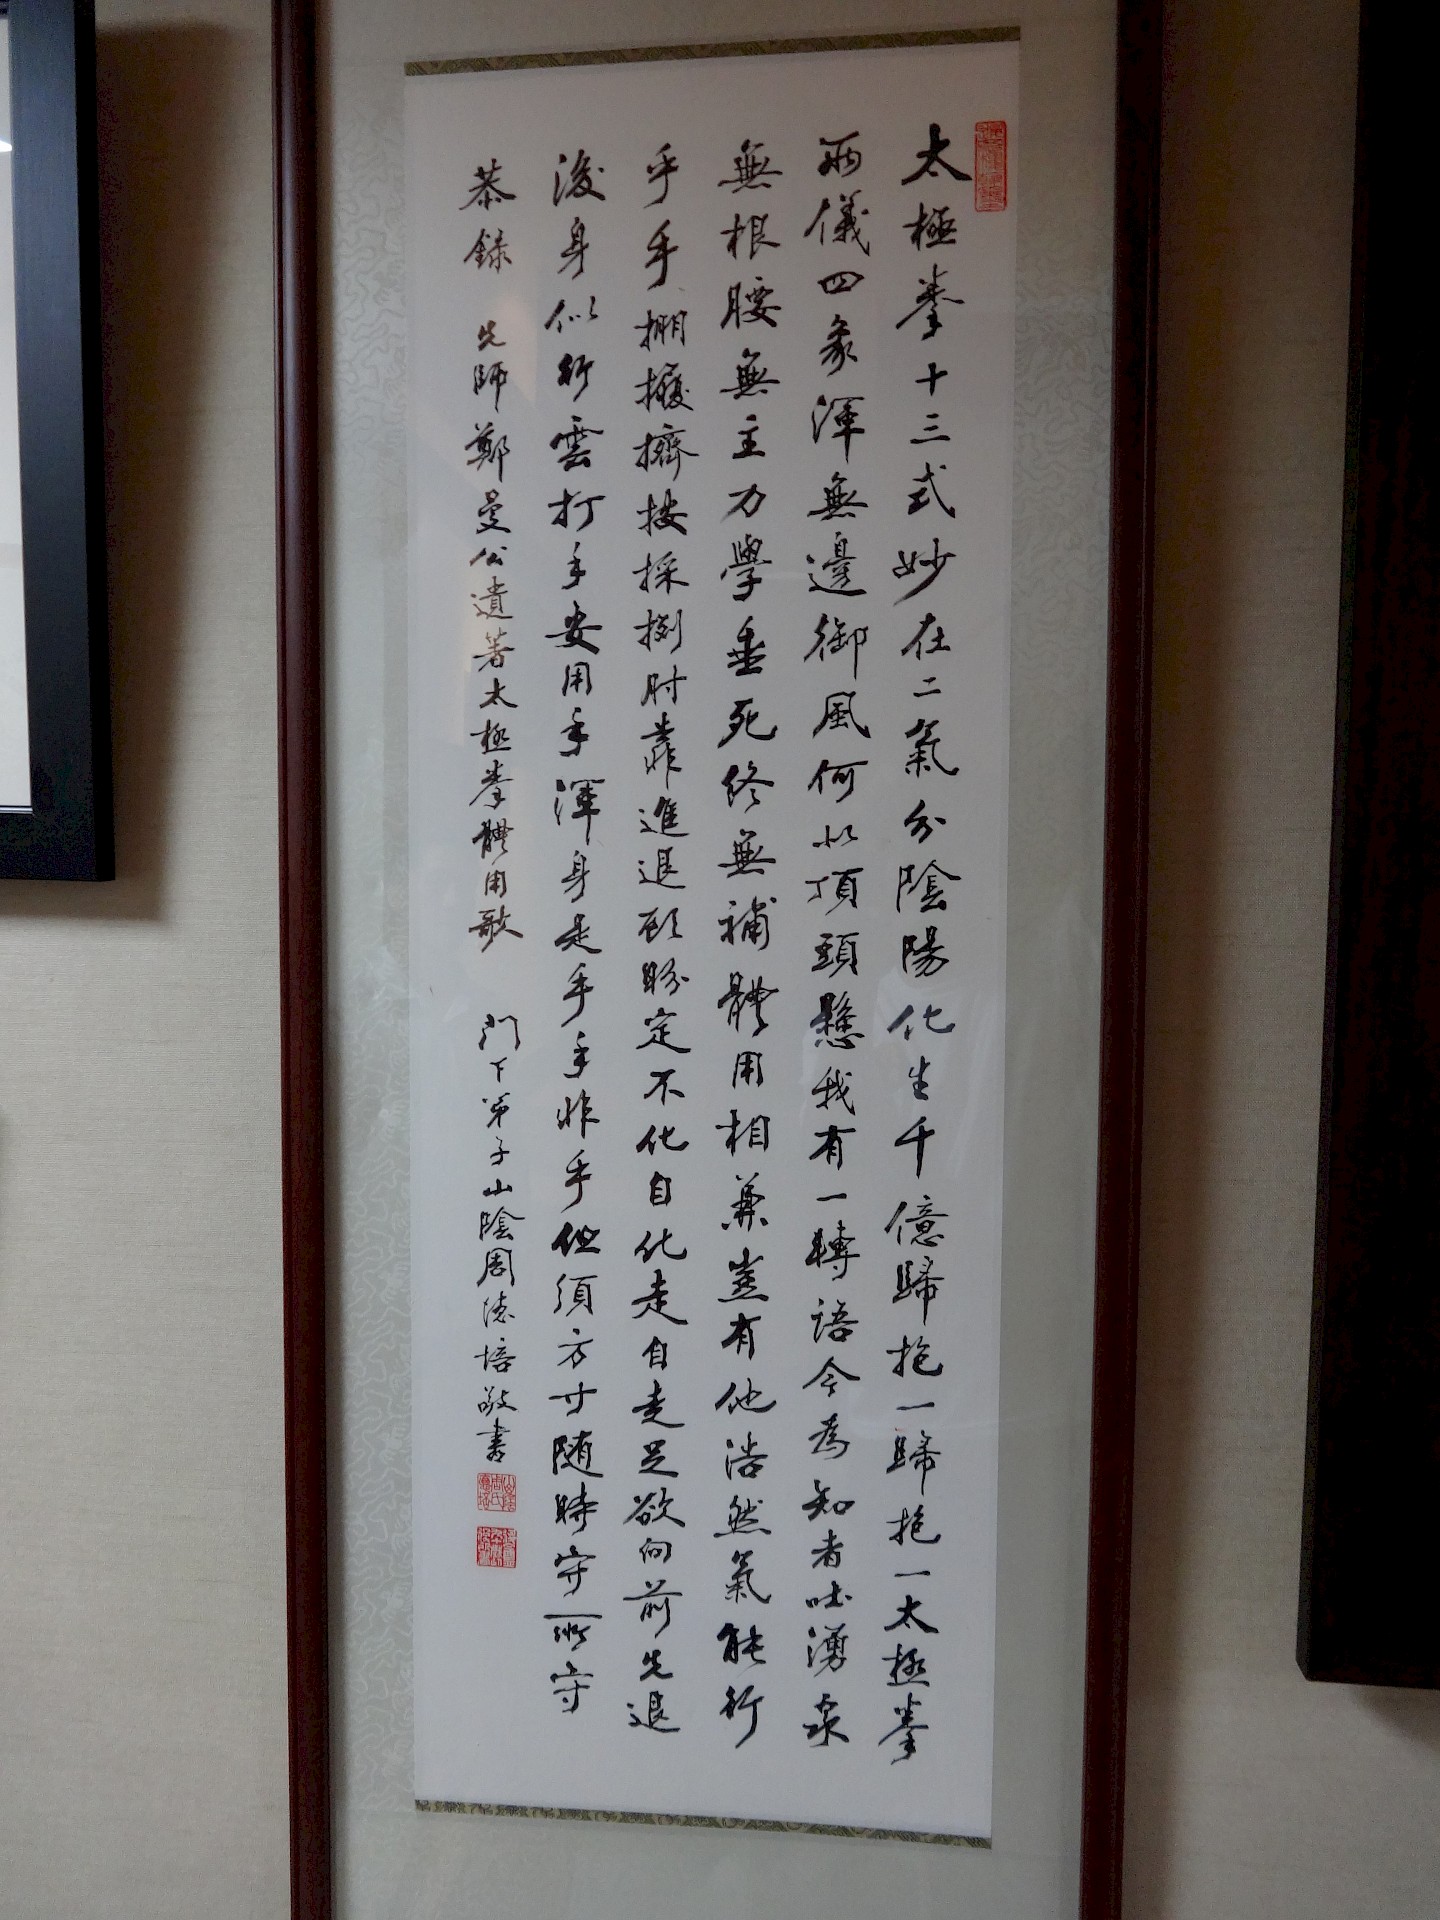 太極拳十三式妙在二氣分陰陽化生千億歸抱一歸抱一太極拳
兩儀四象渾無邊御風何似頂頭懸我有一轉語今為知者吐湧泉
無根腰無主力學垂死終無補體用相兼豈有他浩然氣能行
乎手掤攦擠按採挒肘靠進退顧盼定不化自化走自走足欲向前先退
後身似行雲打手安用手渾身是手手非手但須方寸隨時守所守
恭錄 先師鄭曼公遺著太極拳體用歌 門下弟子山陰周德培敬書